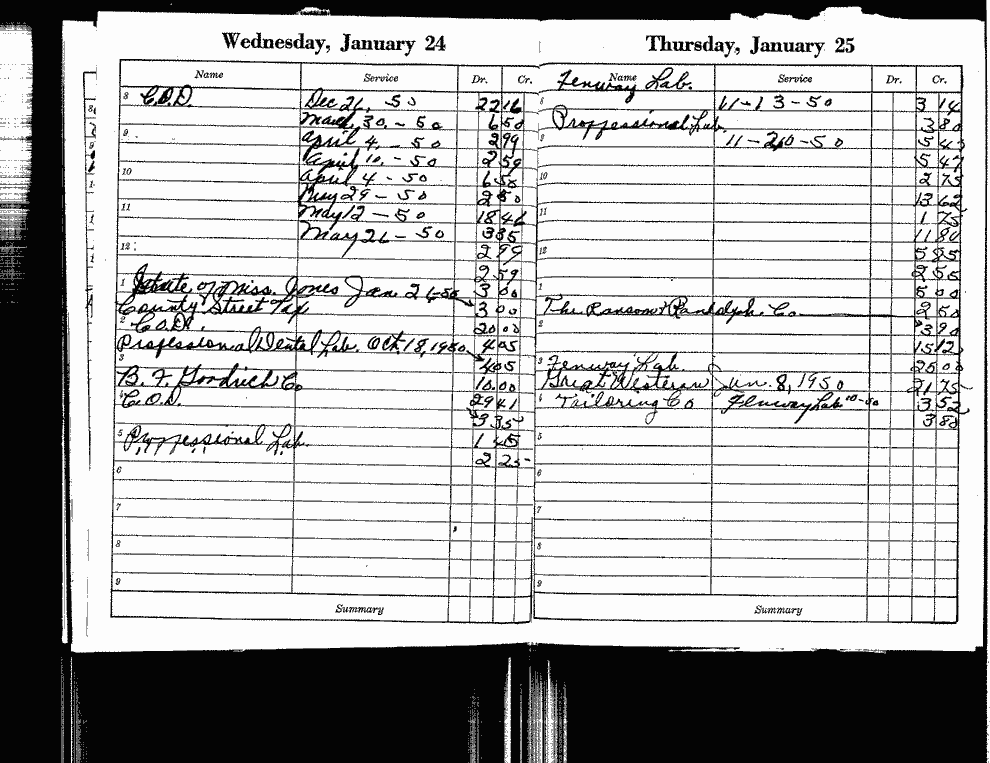 Wednesday, January 24
Name Service Dr. Cr.
8 C.O.D. Dec 26, 50 22 16
March 30, - 50 6 50
9 April 4, - 50 2 99
April 10, - 50 2 59
10 April 4 - 50 6 50
May 29 - 50 2 50
11 May 12 - 50 18 46
May 26 - 50 3 35
12 2 99
2 59
1 State of Miss. Jones Jan. 26 50 3 00
County Street Tax 3 00
2 C.O.D. 20 00
Professional Dental Lab. Oct. 18, 1950 4 05
3 4 05
B. F. Goodrich Co 10.00
4 C.O.D. 29 41
3 35
5 Proffessional Lab. 1 45
2 25
6
7
8
9
Summary
Thursday, January 25
Name Service Dr. Cr.
Fenway Lab.
8 11-13-50 3 14
Proffessional Lab. 3 80
9 11-20-50 5 43
5 47
10 2 75
13 62
11 1 75
11 80
12 5 85
2 50
1 5 00
The Ransom & Randolph. Co 2 50
2 3 90
15 12
3 Fenway Lab. 20 00
Great Western Jan. 8, 1950 21 75
4 Tailoring Co Fenway Lab 10-50 3 52
3 80
5
6
7
8
9
Summary